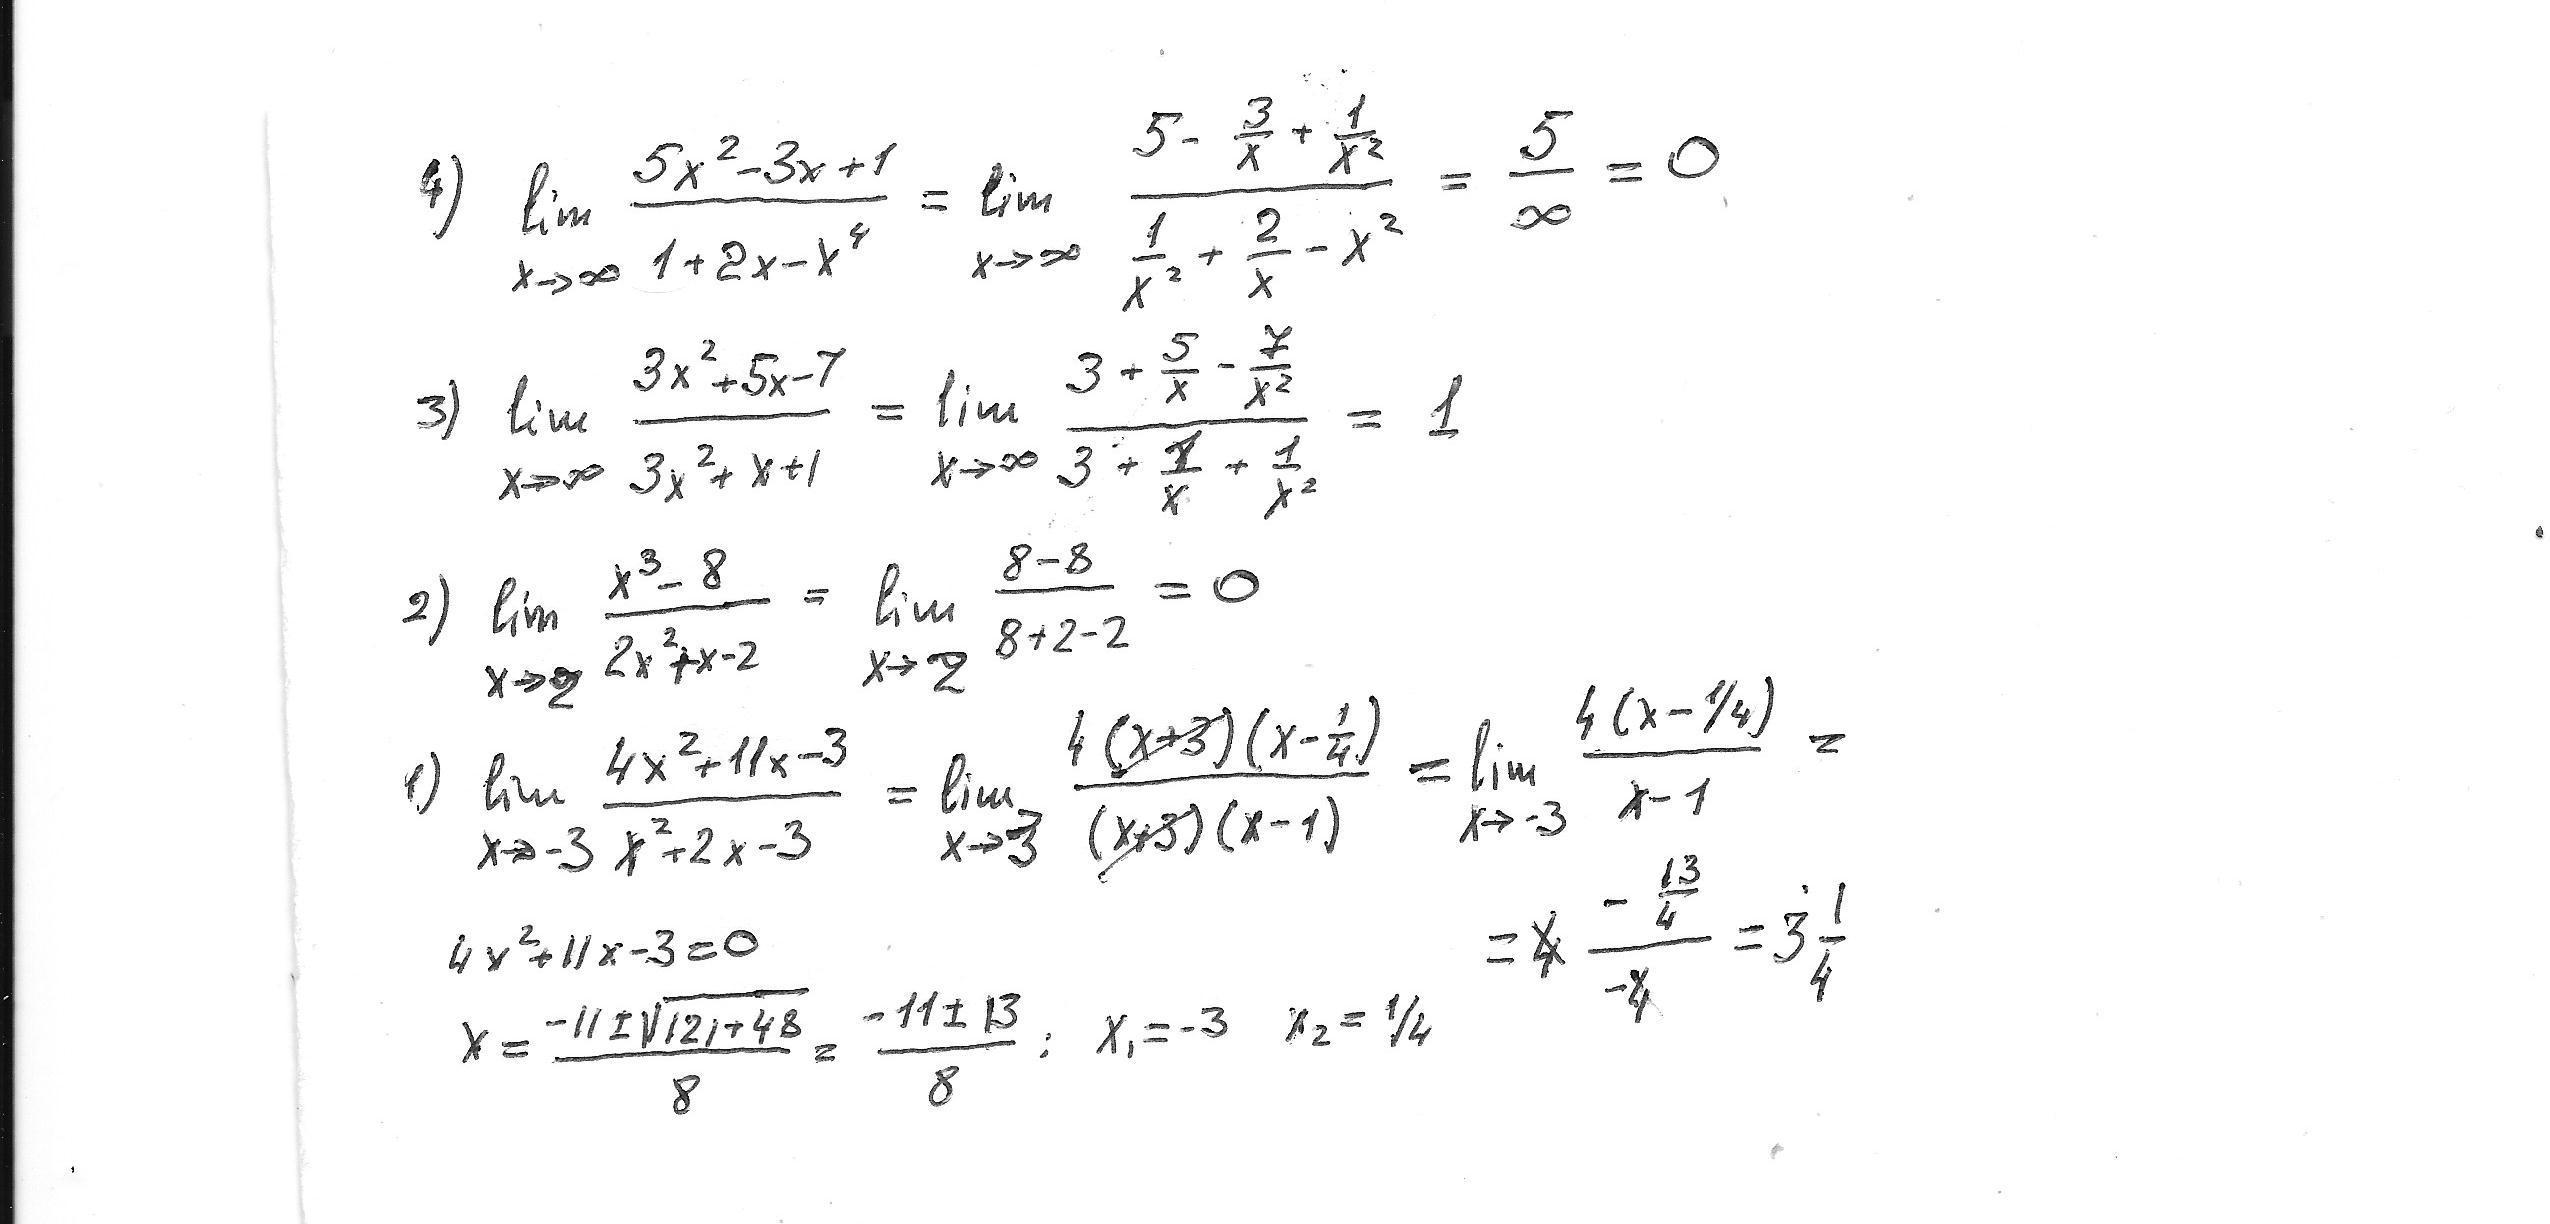 4) lim x→∞ (5x²-3x+1)/(1+2x-x⁴) = lim x→∞ (5 - 3/x + 1/x²)/(1/x² + 2/x - x²) = 5/∞ = 0
3) lim x→∞ (3x²+5x-7)/(3x²+x+1) = lim x→∞ (3 + 5/x - 7/x²)/(3 + 1/x + 1/x²) = 1
2) lim x→2 (x³-8)/(2x²+x-2) = lim x→2 (8-8)/(8+2-2) = 0
1) lim x→-3 (4x²+11x-3)/(x²+2x-3) = lim x→-3 (4(x+3)(x-1/4))/((x+3)(x-1)) = lim x→-3 (4(x-1/4))/(x-1) =
= 4 (-13/4)/(-4) = 3 1/4
4x²+11x-3=0
x = (-11±√121+48)/8 = (-11±13)/8 ; x₁=-3 x₂=1/4